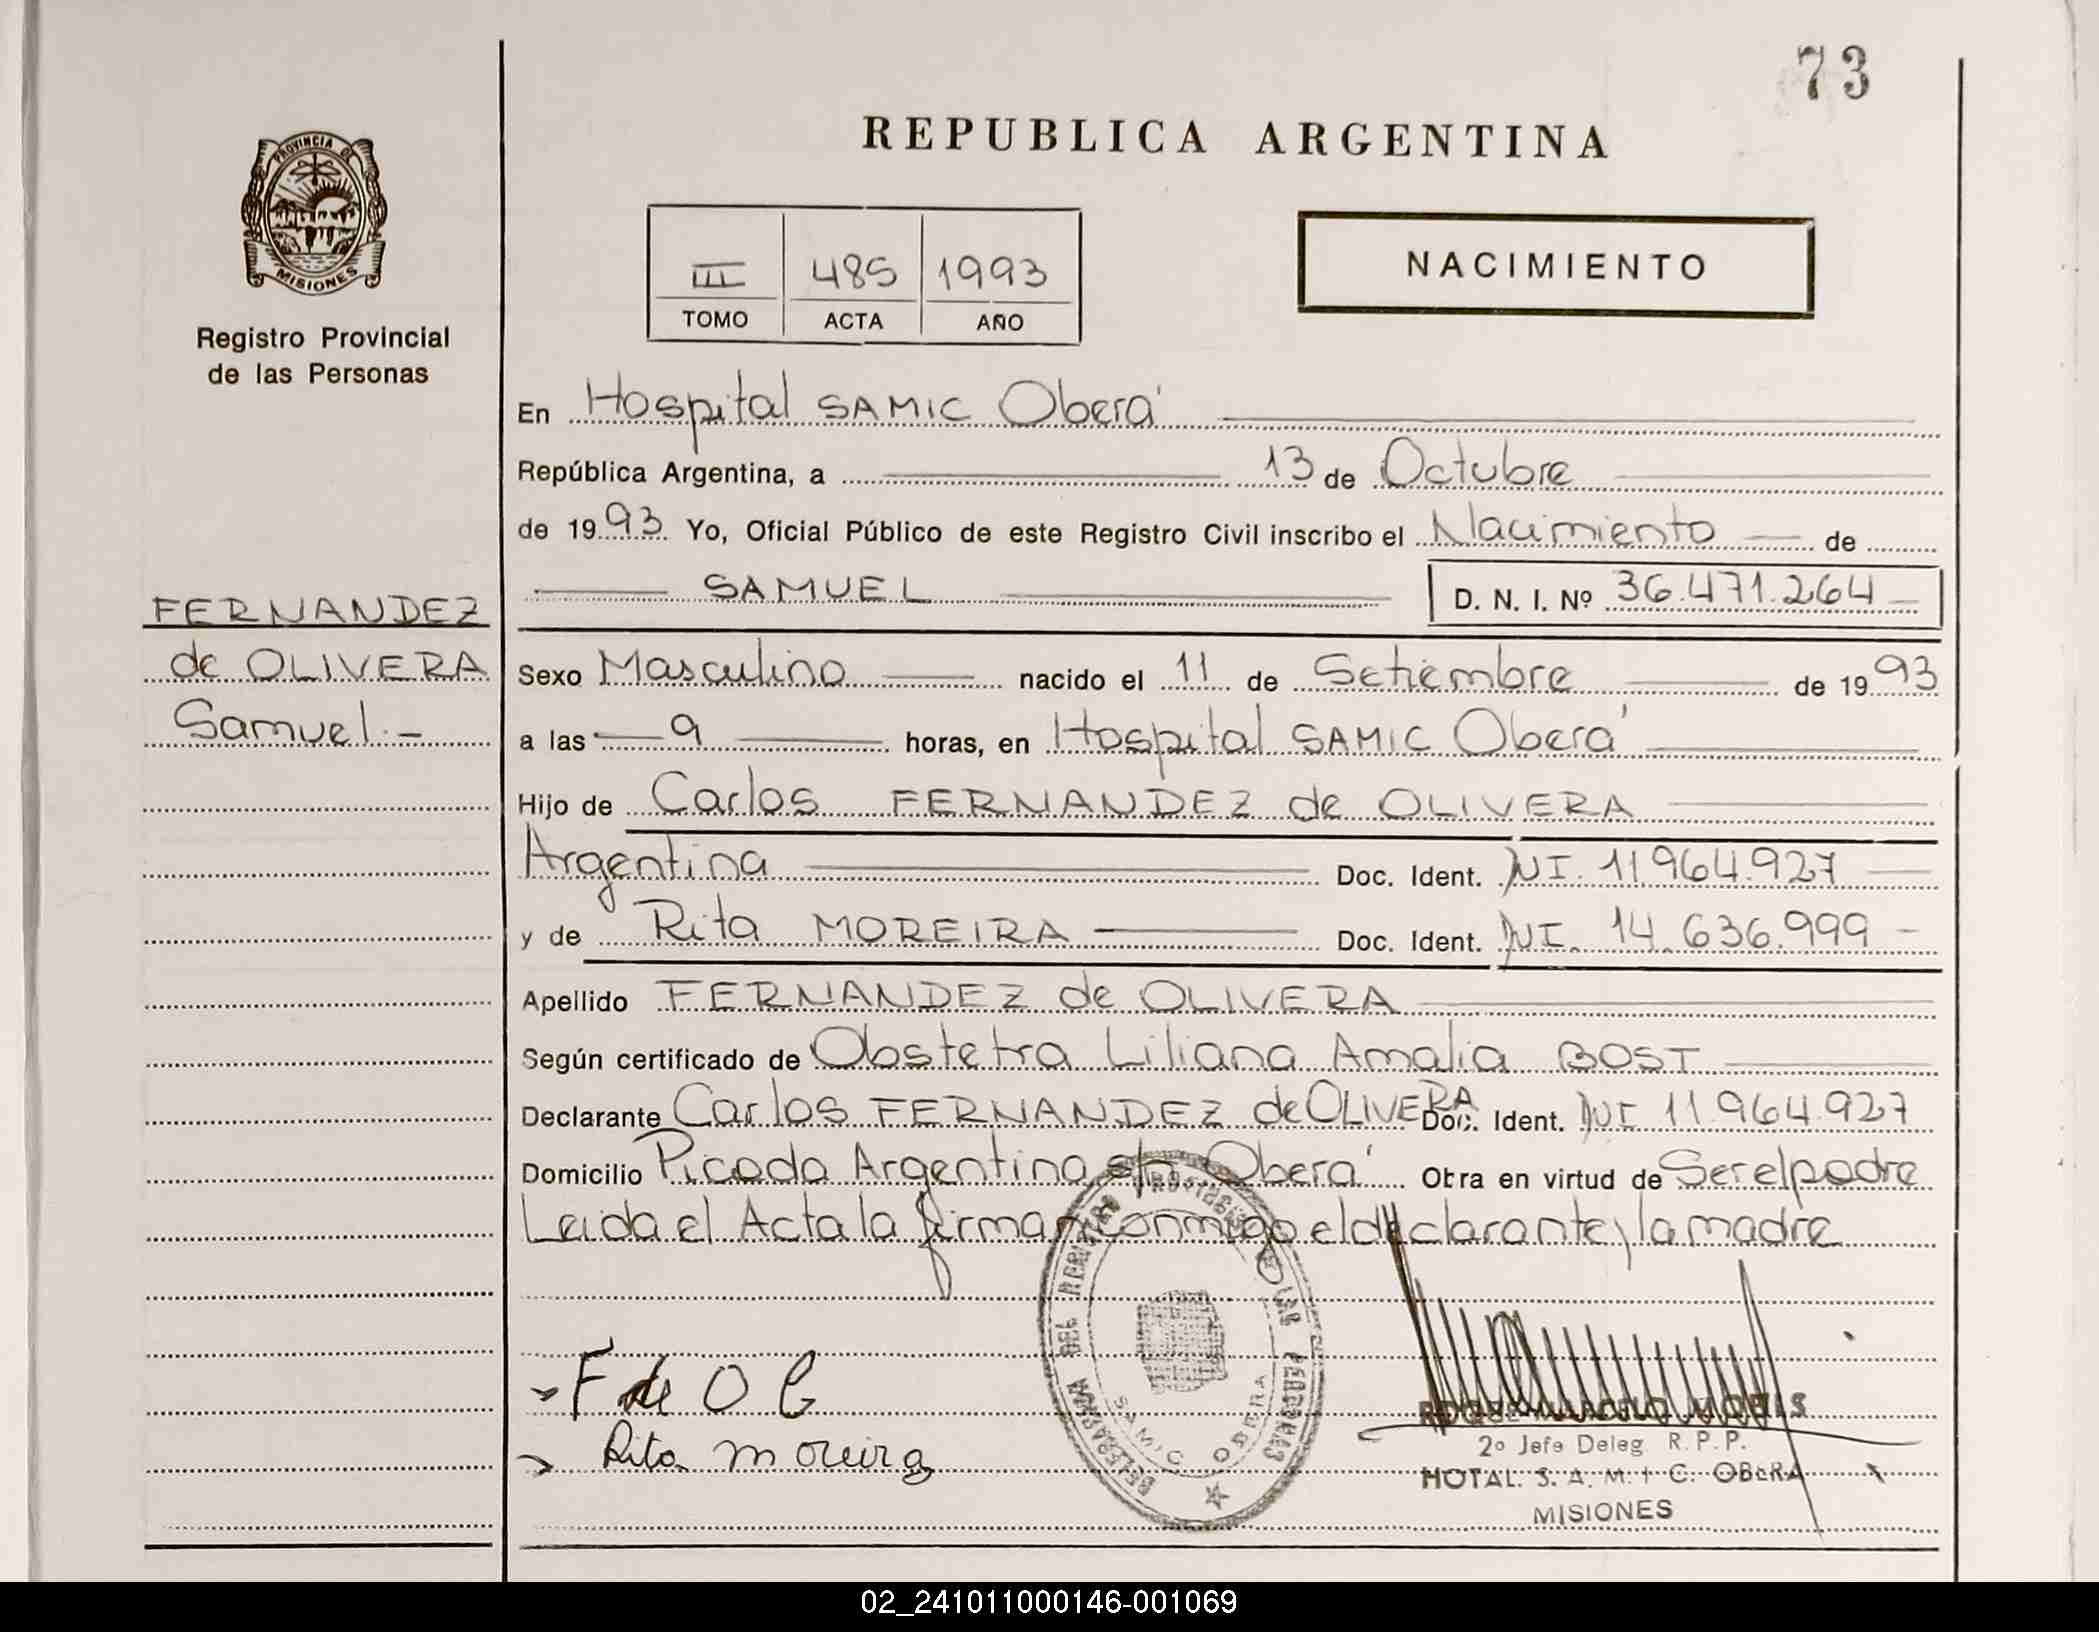 73
REPUBLICA ARGENTINA
PROVINCIA DE
MISIONES
Registro Provincial
de las Personas
III 485 1993
TOMO ACTA AÑO
NACIMIENTO
En Hospital SAMIC Oberá
República Argentina, a 13 de Octubre
de 1993 Yo, Oficial Público de este Registro Civil inscribo el Nacimiento de
SAMUEL D. N. I. Nº 36.471.264
FERNANDEZ
de OLIVERA
Samuel.-
Sexo Masculino nacido el 11 de Setiembre de 1993
a las 9 horas, en Hospital SAMIC Oberá
Hijo de Carlos FERNANDEZ de OLIVERA
Argentina Doc. Ident. NI. 11.964.927
y de Rita MOREIRA Doc. Ident. NI. 14.636.999
Apellido FERNANDEZ de OLIVERA
Según certificado de Obstetra Liliana Amalia BOST
Declarante Carlos FERNANDEZ de OLIVERA Doc. Ident. NI 11.964.927
Domicilio Picada Argentina s/n Oberá Obra en virtud de Ser el padre
Leida el Acta la firman conmigo el declarante y la madre
F de O C
Rita moreira
DEL REGISTRO PROVINCIAL DE LAS PERSONAS
SAMIC OBERA
2º Jefe Deleg R.P.P.
HOTAL. S. A. M. I C. OBERA
MISIONES
02_241011000146-001069